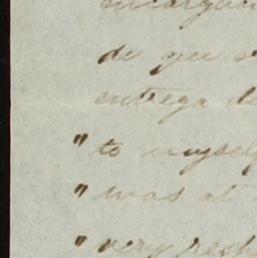 de que
entrega de
" to myself
" was at
" very